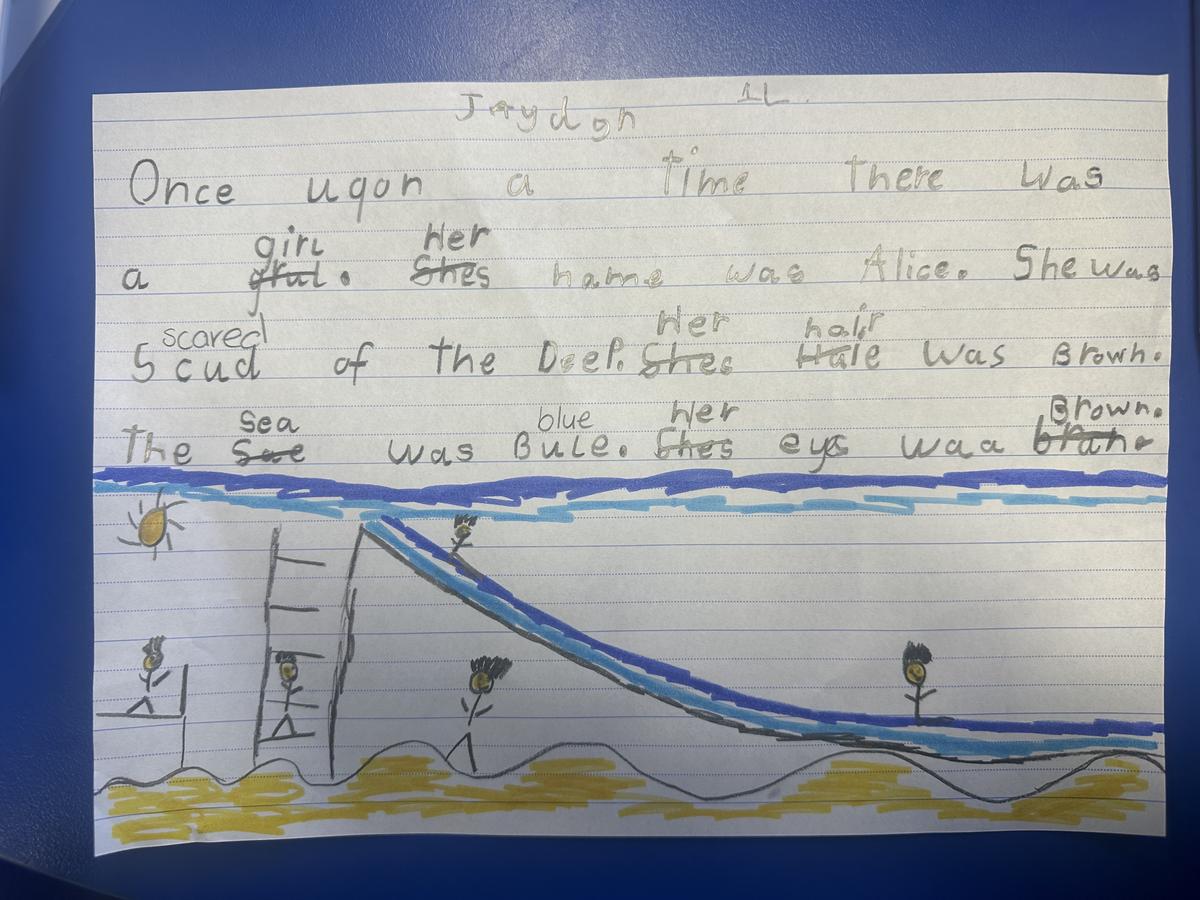 Jaydon 1L.
Once upon a time There was
girl Her
a grul. Shes name was Alice. She was
scared Her hair
Scud of the Deep. Shes Hale was Brown.
sea blue Her Brown.
The See was Bule. Shes eys waa bran.